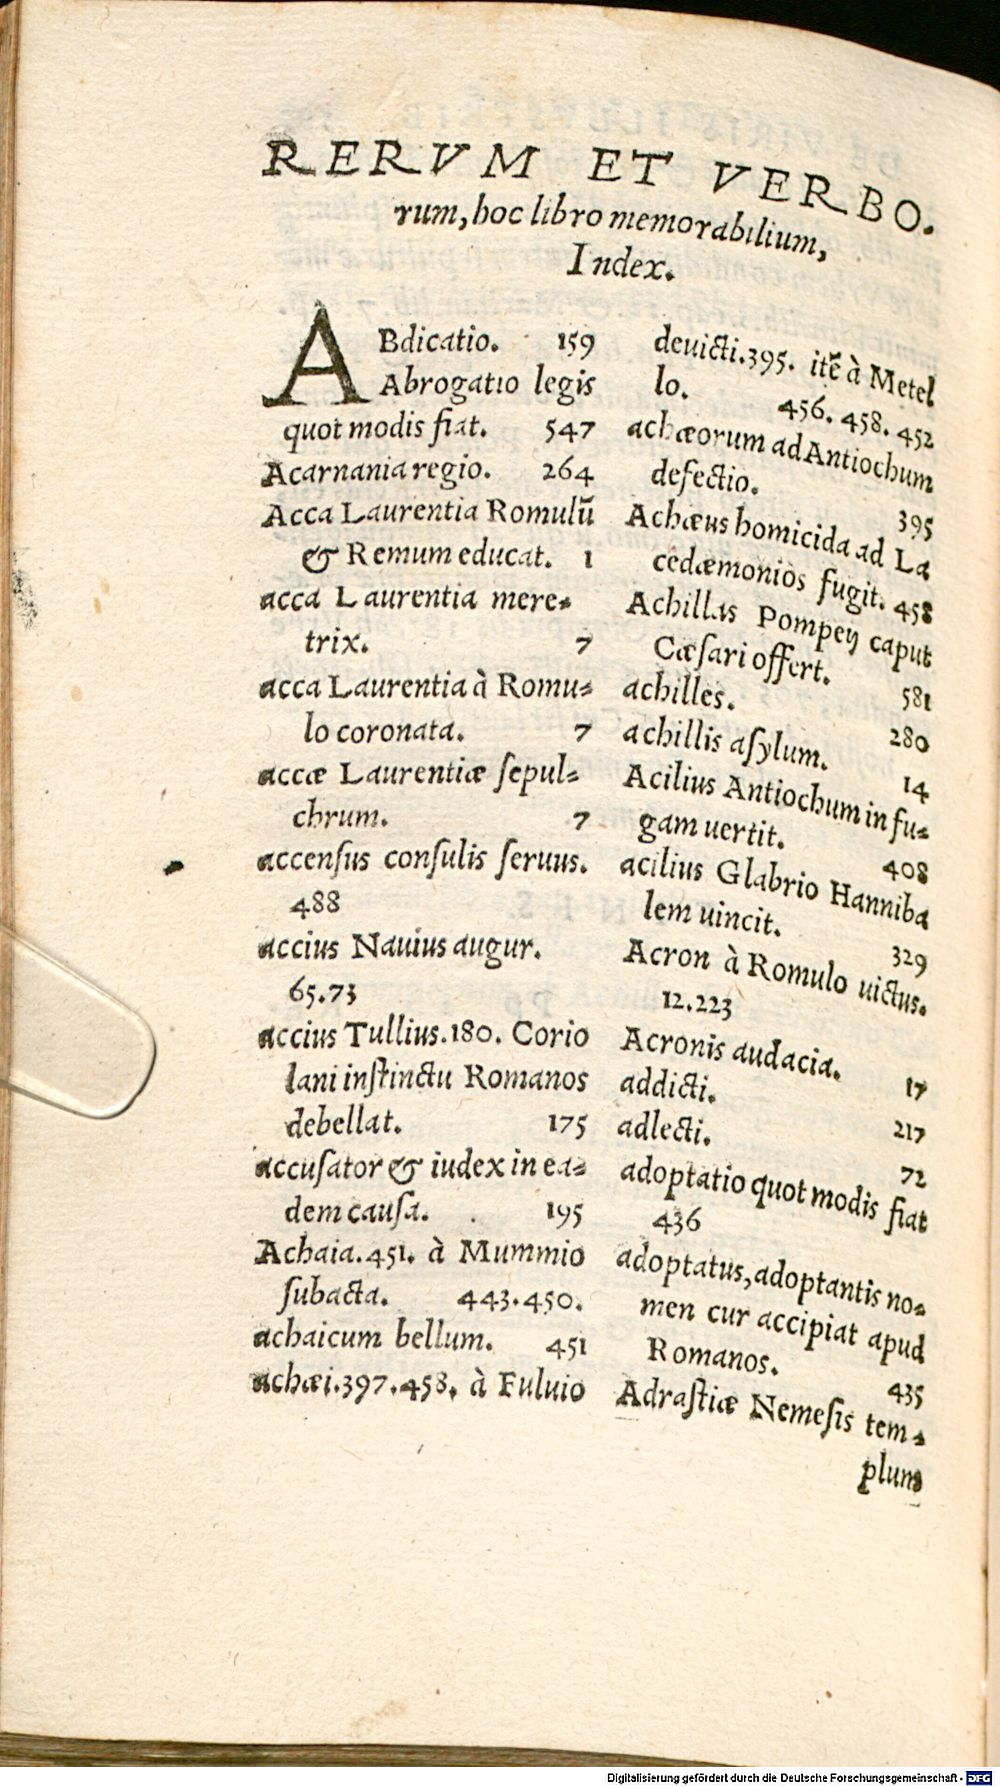 RERVM ET VERBO.
rum, hoc libro memorabilium,
Index.
ABdicatio. 159
Abrogatio legis
quot modis fiat. 547
Acarnania regio. 264
Acca Laurentia Romulū
& Remum educat. 1
acca Laurentia mere-
trix. 7
acca Laurentia à Romu-
lo coronata. 7
accæ Laurentiæ sepul-
chrum. 7
accensus consulis seruus.
488
accius Nauius augur.
65.73
accius Tullius.180. Corio
lani instinctu Romanos
debellat. 175
accusator & iudex in ea-
dem causa. 195
Achaia.451. à Mummio
subacta. 443.450.
achaicum bellum. 451
achæi.397.458. à Fuluio
deuicti.395. itē à Metel
lo. 456. 458. 452
achæorum ad Antiochum
defectio. 395
Achæus homicida ad La
cedæmonios fugit. 458
Achillas Pompeij caput
Cæsari offert. 581
achilles. 280
achillis asylum. 14
Acilius Antiochum in fu-
gam uertit. 408
acilius Glabrio Hanniba
lem uincit. 329
Acron à Romulo uictus.
12.223
Acronis audacia. 17
addicti. 217
adlecti. 72
adoptatio quot modis fiat
436
adoptatus, adoptantis no-
men cur accipiat apud
Romanos. 435
Adrastiæ Nemesis tem-
plum
Digitalisierung gefördert durch die Deutsche Forschungsgemeinschaft - DFG